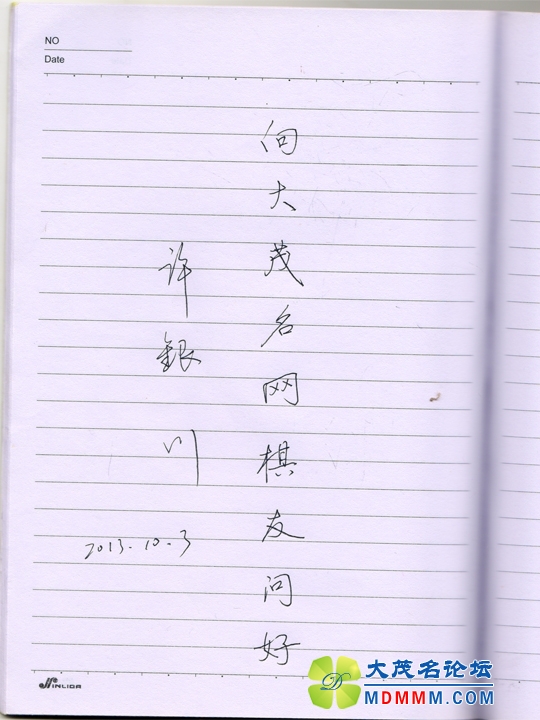 NO
Date
向大茂名网棋友问好
许銀川
2013.10.3
JINLIDA
大茂名论坛
MDMMM.COM